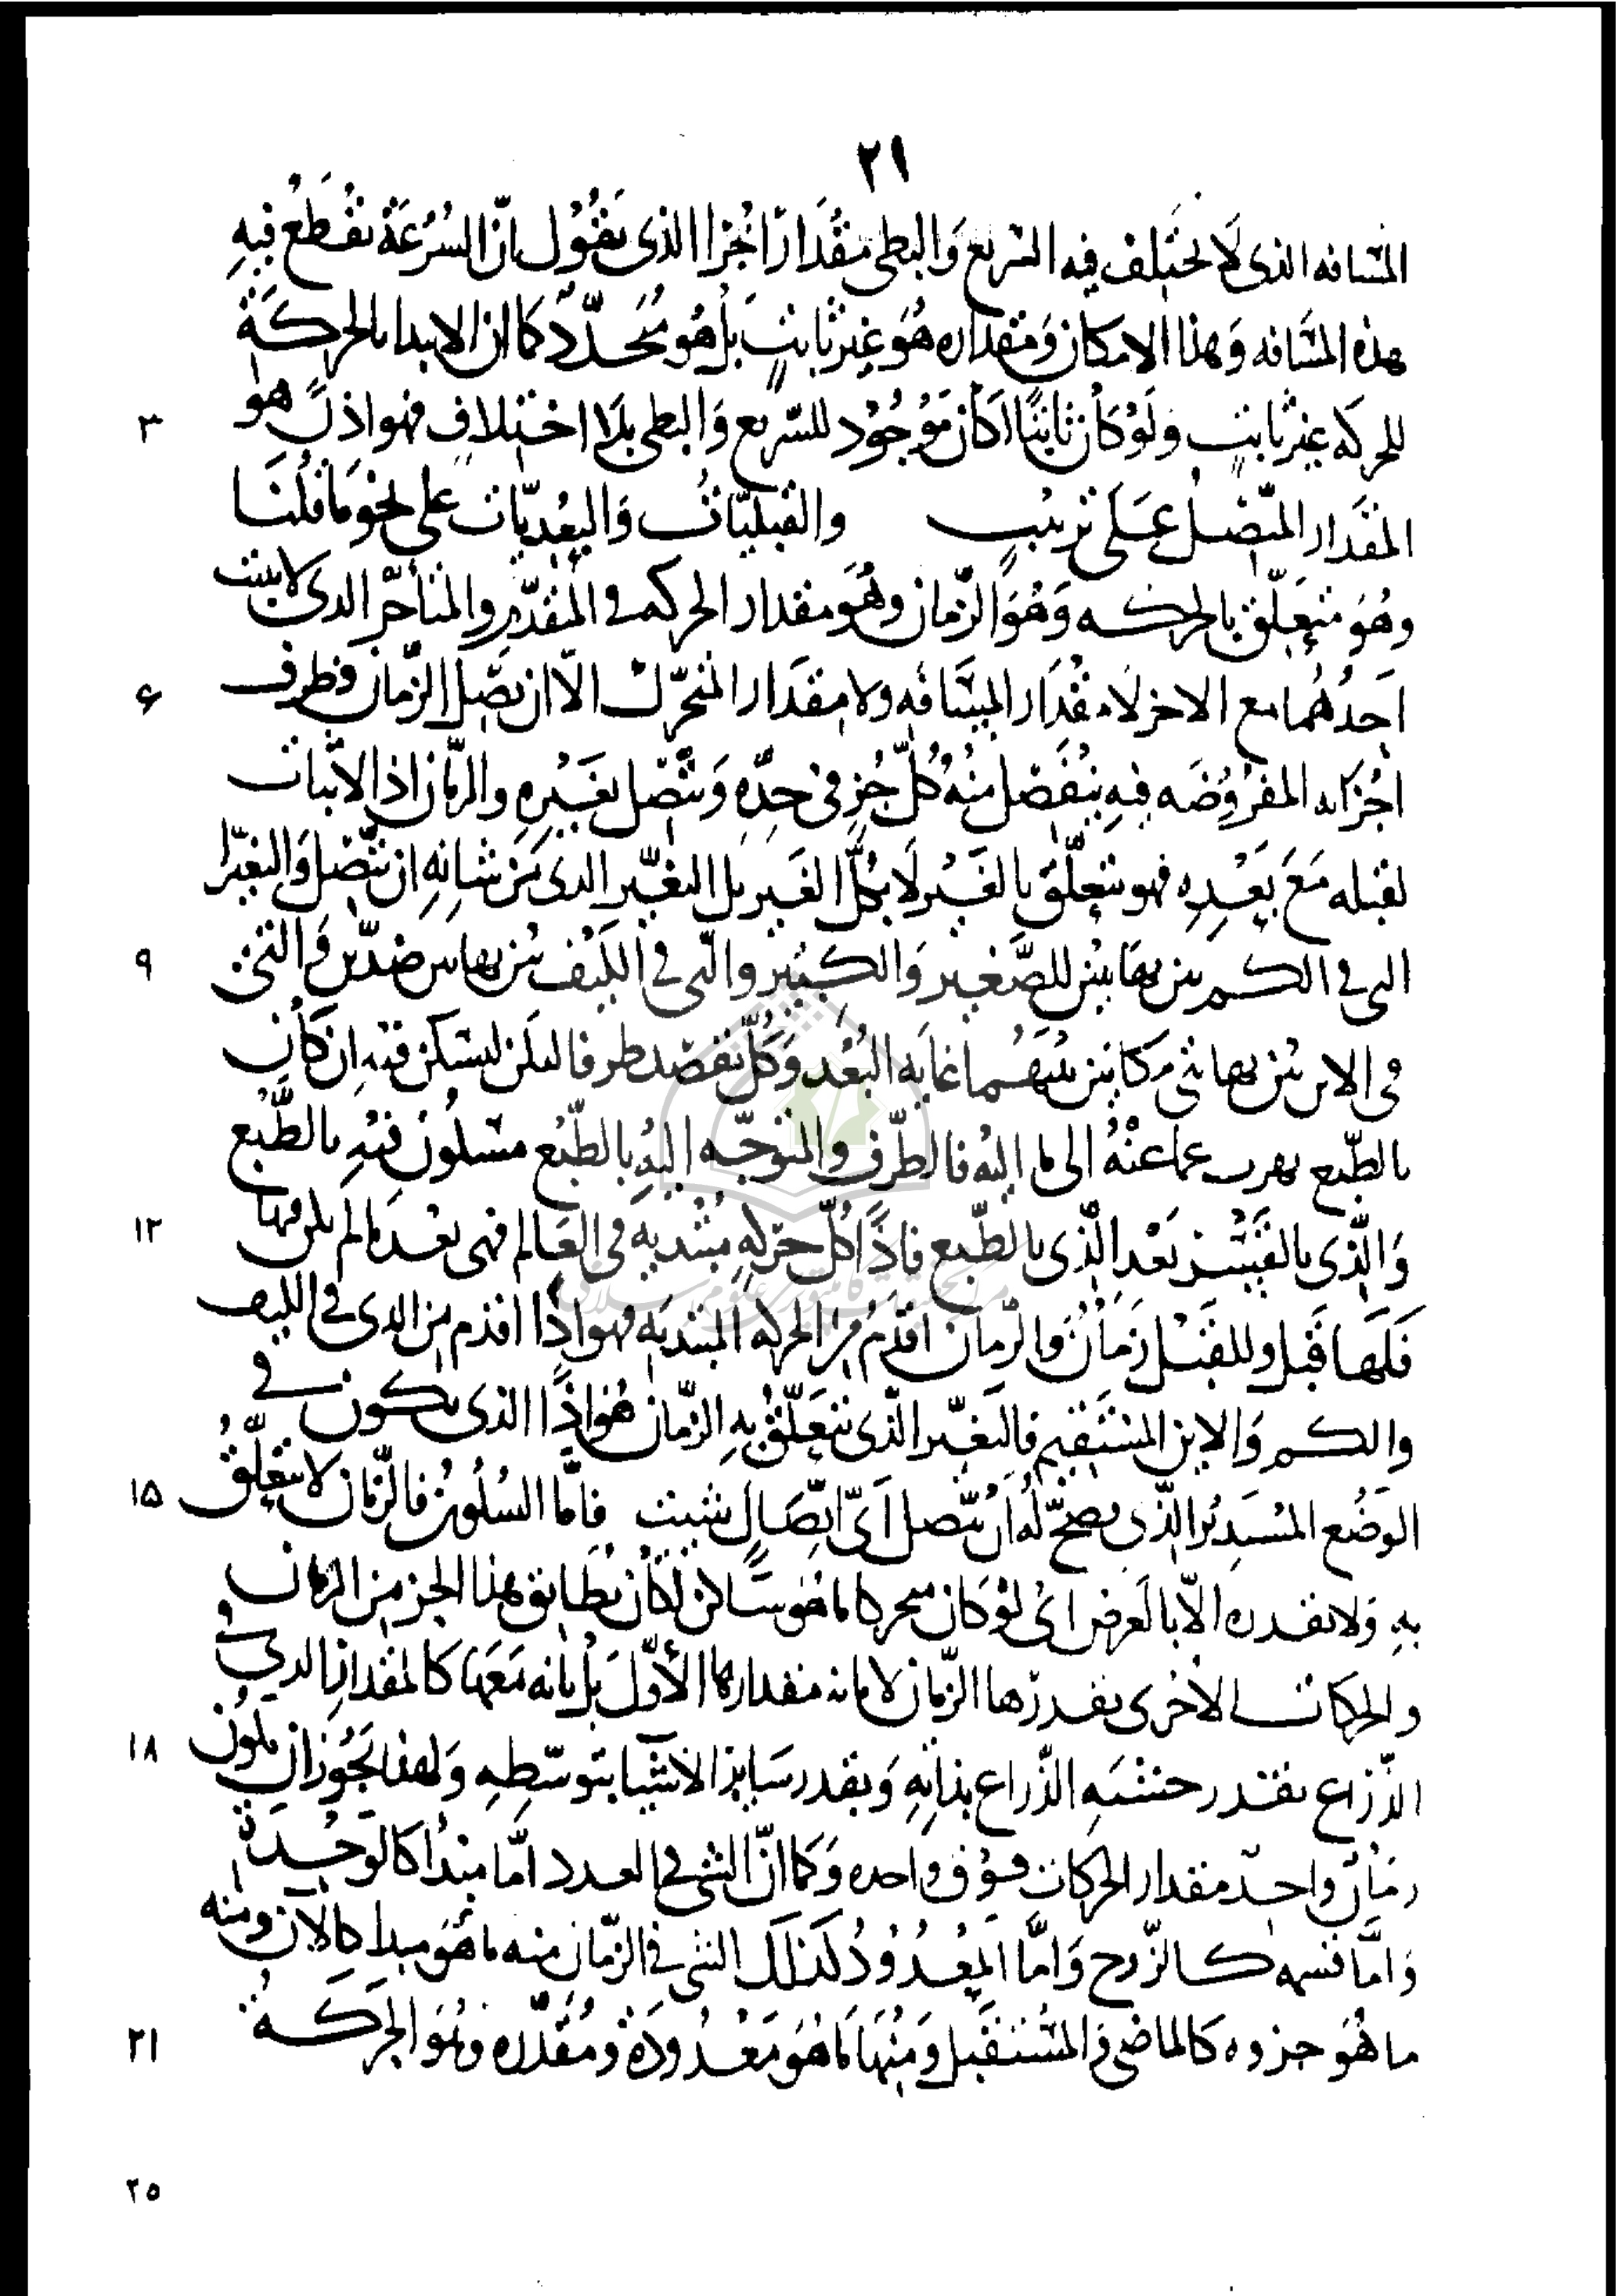 ٢١
المسافه الذى لا يختلف فيه السريع والبطى مقدارًا اخرا الذى يقول ان السرعة يقطع فيه
هذه المسافه وهذا الامكان ومقداره هو غير ثابت بل هو متجدد كما ان الابدا بالحركة
للحركه غير ثابت ولو كان ثابتا لكان موجود للسريع والبطى بلا اختلاف فهو اذن هو
٣
المقدار المتصل على ترتيب والقبليات والبعديات على نحو ما قلنا
وهو متعلق بالحركه وهو الزمان وهو مقدار الحركه فى المتقدم والمتاخر الذى لا يثبت
احدهما مع الاخر لا مقدار المسافه ولا مقدار المتحرك الا ان يتصل الزمان فطرف
۶
اجزائه المفروضه فيه ينفصل منه كل جز فى حده ويتصل بغيره والزمان اذ لا ثبات
لقبله مع بعده فهو يتعلق بالتغير لا بكل التغير بل التغير الذى من شانه ان يتصل والتغير
التى فى الكم ينن نهايتين للصغير والكبير والتى فى الكيف بين نهايتين ضدين والتى
٩
فى الاين بين نهايتى مكانين بينهما غاية البعد وكل يقصد طرفا ليسكن فيه ان كان
بالطبع يهرب عما عنه الى ما اليه فالطرف والتوجه اليه بالطبع مسكون فيه بالطبع
والذى بالقسر بعد الذى بالطبع فاذًا كل حركه مبتديه فى العالم فهى بعد ما لم يكن فيها
١٢
فلها قبل وللقبل زمان والزمان اقدم من الحركه المبتديه فهو اذًا اقدم من الذى فى الكيف
والكم والاين المستقيم فالتغير الذى يتعلق به الزمان هو اذًا الذى يكون فى
الوضع المستدير الذى يصح له ان يتصل اى اتصال شيت فاما السكون فالزمان لا يتعلق
١۵
به ولا يقدره الا بالعرض اى لو كان متحركا ما هو ساكن لكان يطابق هذا الجز من الزمان
والحركات الاخرى يقدرها الزمان لا بانه مقدارها الاول بل بانه معها كالمقدار الذى فى
الذراع يقدر خشبه الذراع بذاته ويقدر ساير الاشيا بتوسطه ولهذا يجوز ان يكون
١٨
زمان واحد مقدار الحركات فوق واحده وكما ان الشى فى العدد اما مبدا كالوحدة
واما قسمه كالزوج واما المعدود كذلك الشى فى الزمان منه ما هو مبدا كالان ومنه
ما هو جزوه كالماضى والمستقبل ومنها ما هو معدودة ومقدره وهو الحركة
٢١
٢٥